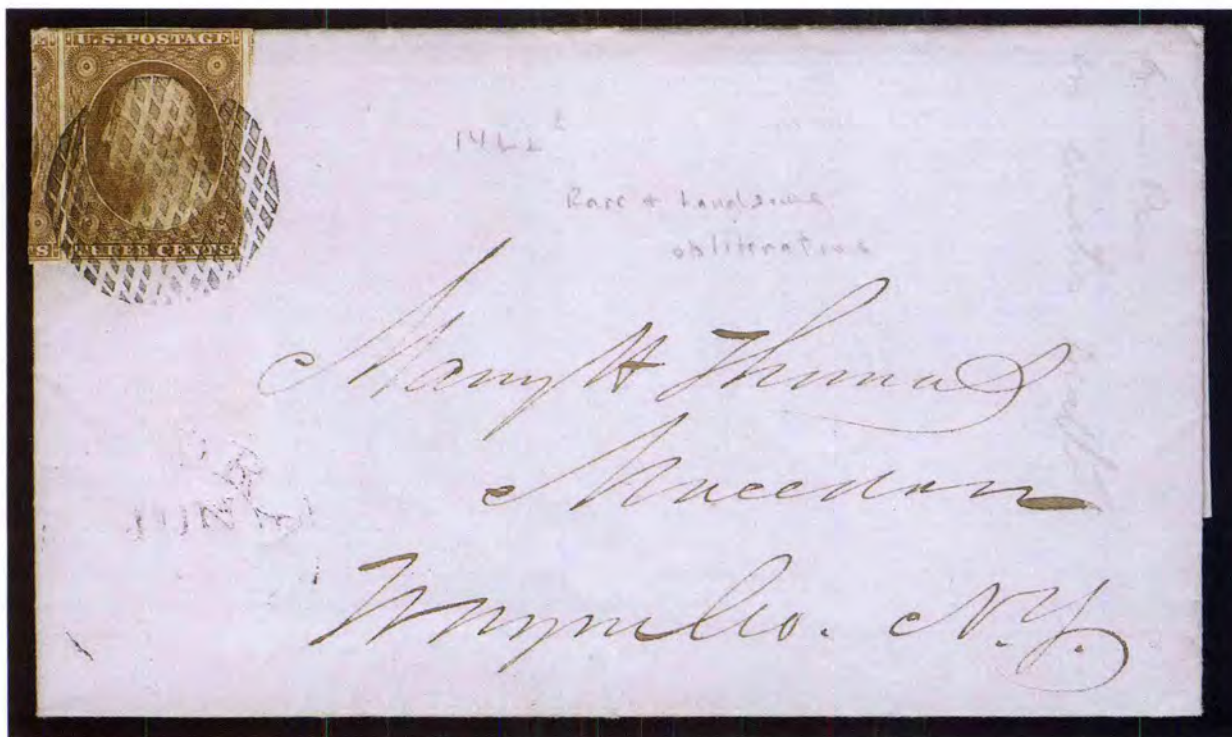 U.S. POSTAGE
S THREE CENTS
14L1
Rare + handsome
obliteration
Mary H Thomas
Macedon
Wayne Co. N.Y.
JUN